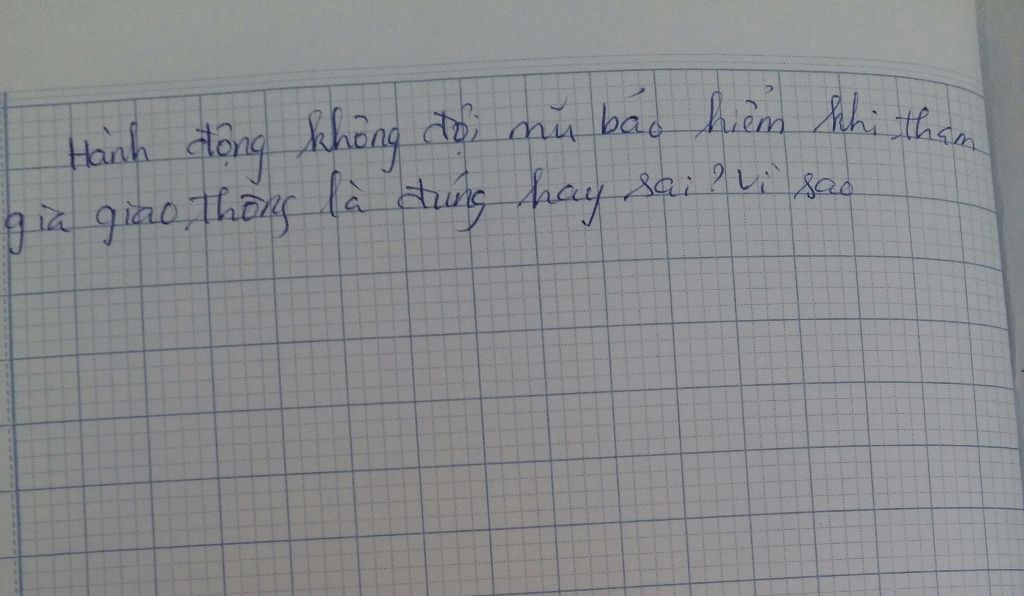 Hành động không đội mũ bảo hiểm khi tham
gia giao thông là đúng hay sai? Vì sao